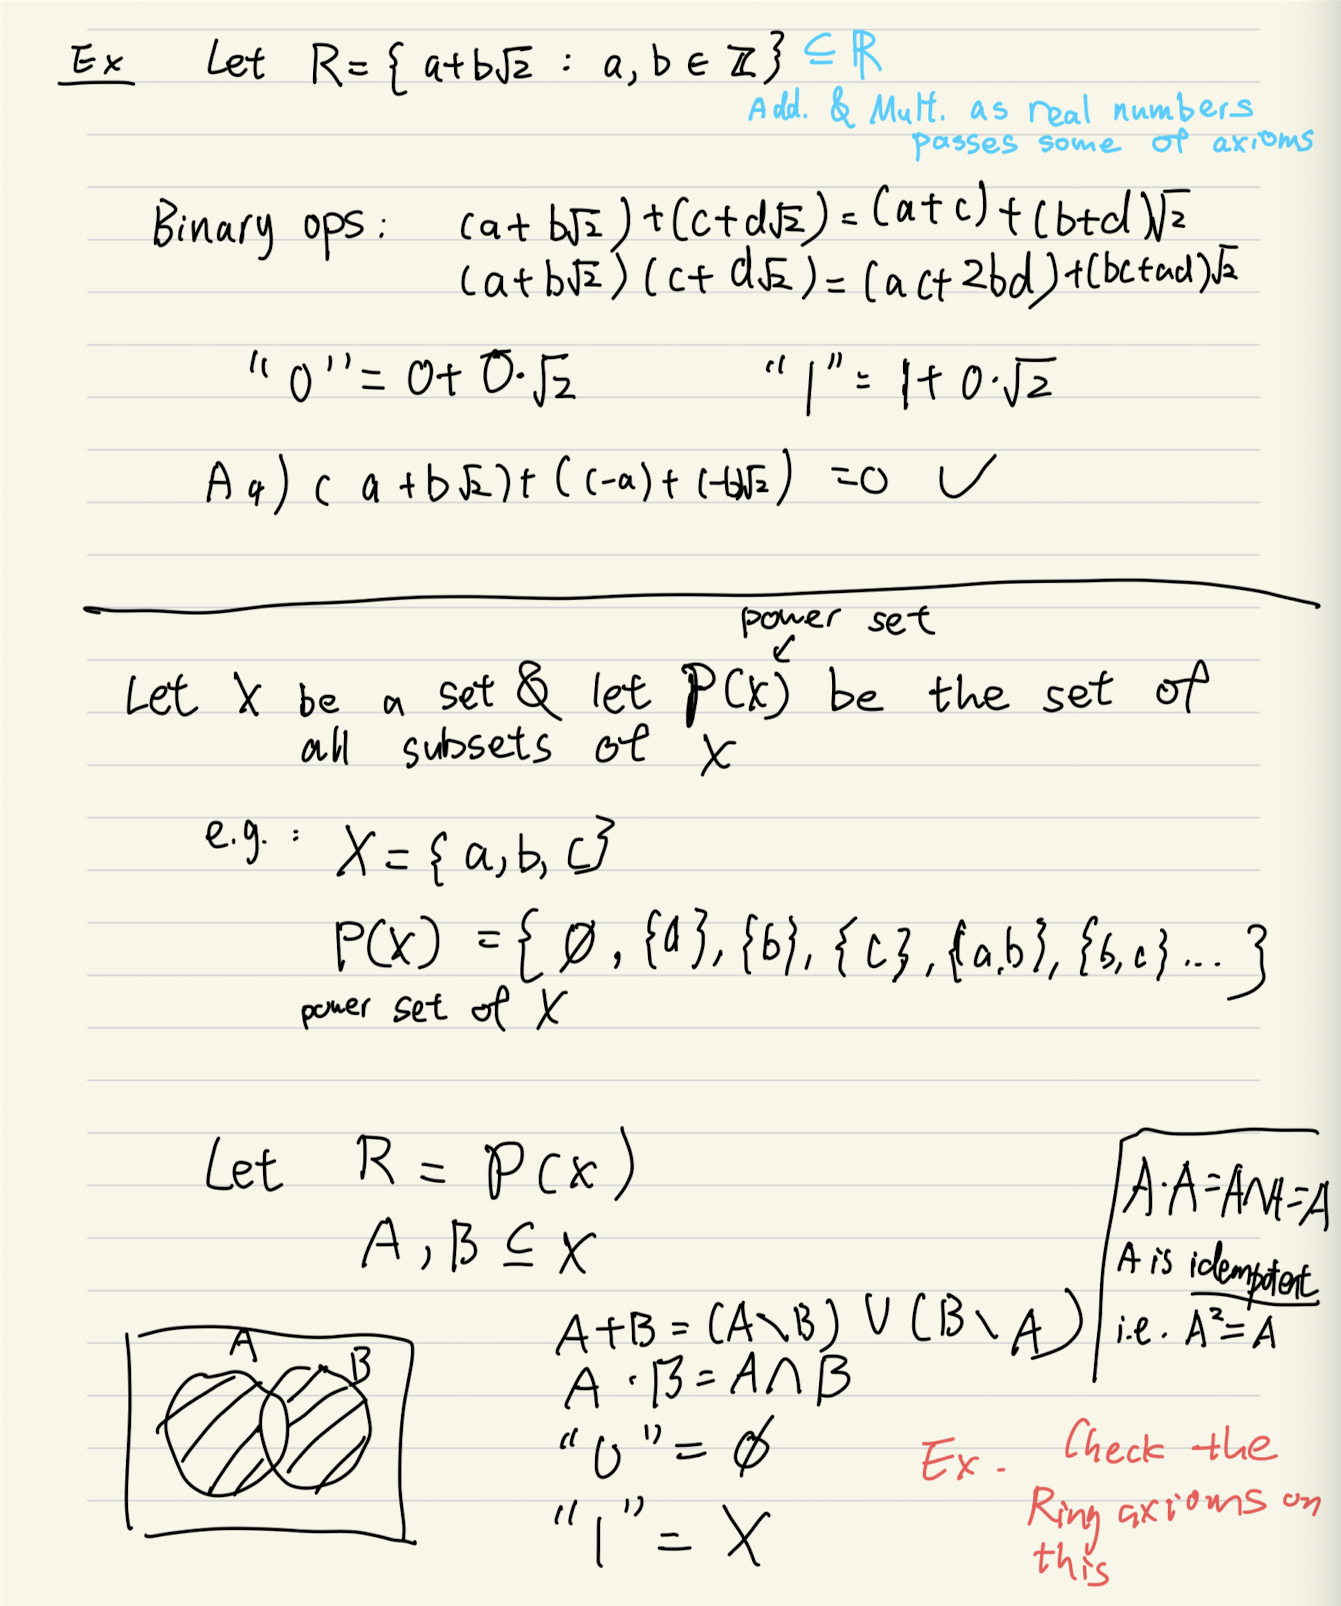 Ex Let R = { a+b√2 : a, b ∈ ℤ } ⊆ ℝ
Add. & Mult. as real numbers
passes some of axioms
Binary ops: (a + b√2) + (c + d√2) = (a + c) + (b+d)√2
(a + b√2) (c + d√2) = (ac + 2bd) + (bc+ad)√2
"0" = 0 + 0·√2 "1" = 1 + 0·√2
A4) (a + b√2) + ((-a) + (-b)√2) = 0 ✓
power set
↙
Let X be a set & let P(X) be the set of
all subsets of X
e.g. : X = { a, b, c }
P(X) = { ∅, {a}, {b}, {c}, {a,b}, {b,c} ... }
power set of X
Let R = P(X)
A, B ⊆ X
A·A = A∩A = A
A is idempotent
i.e. A² = A
A + B = (A \ B) ∪ (B \ A)
A · B = A ∩ B
"0" = ∅
"1" = X
A B
Ex. Check the
Ring axioms on
this